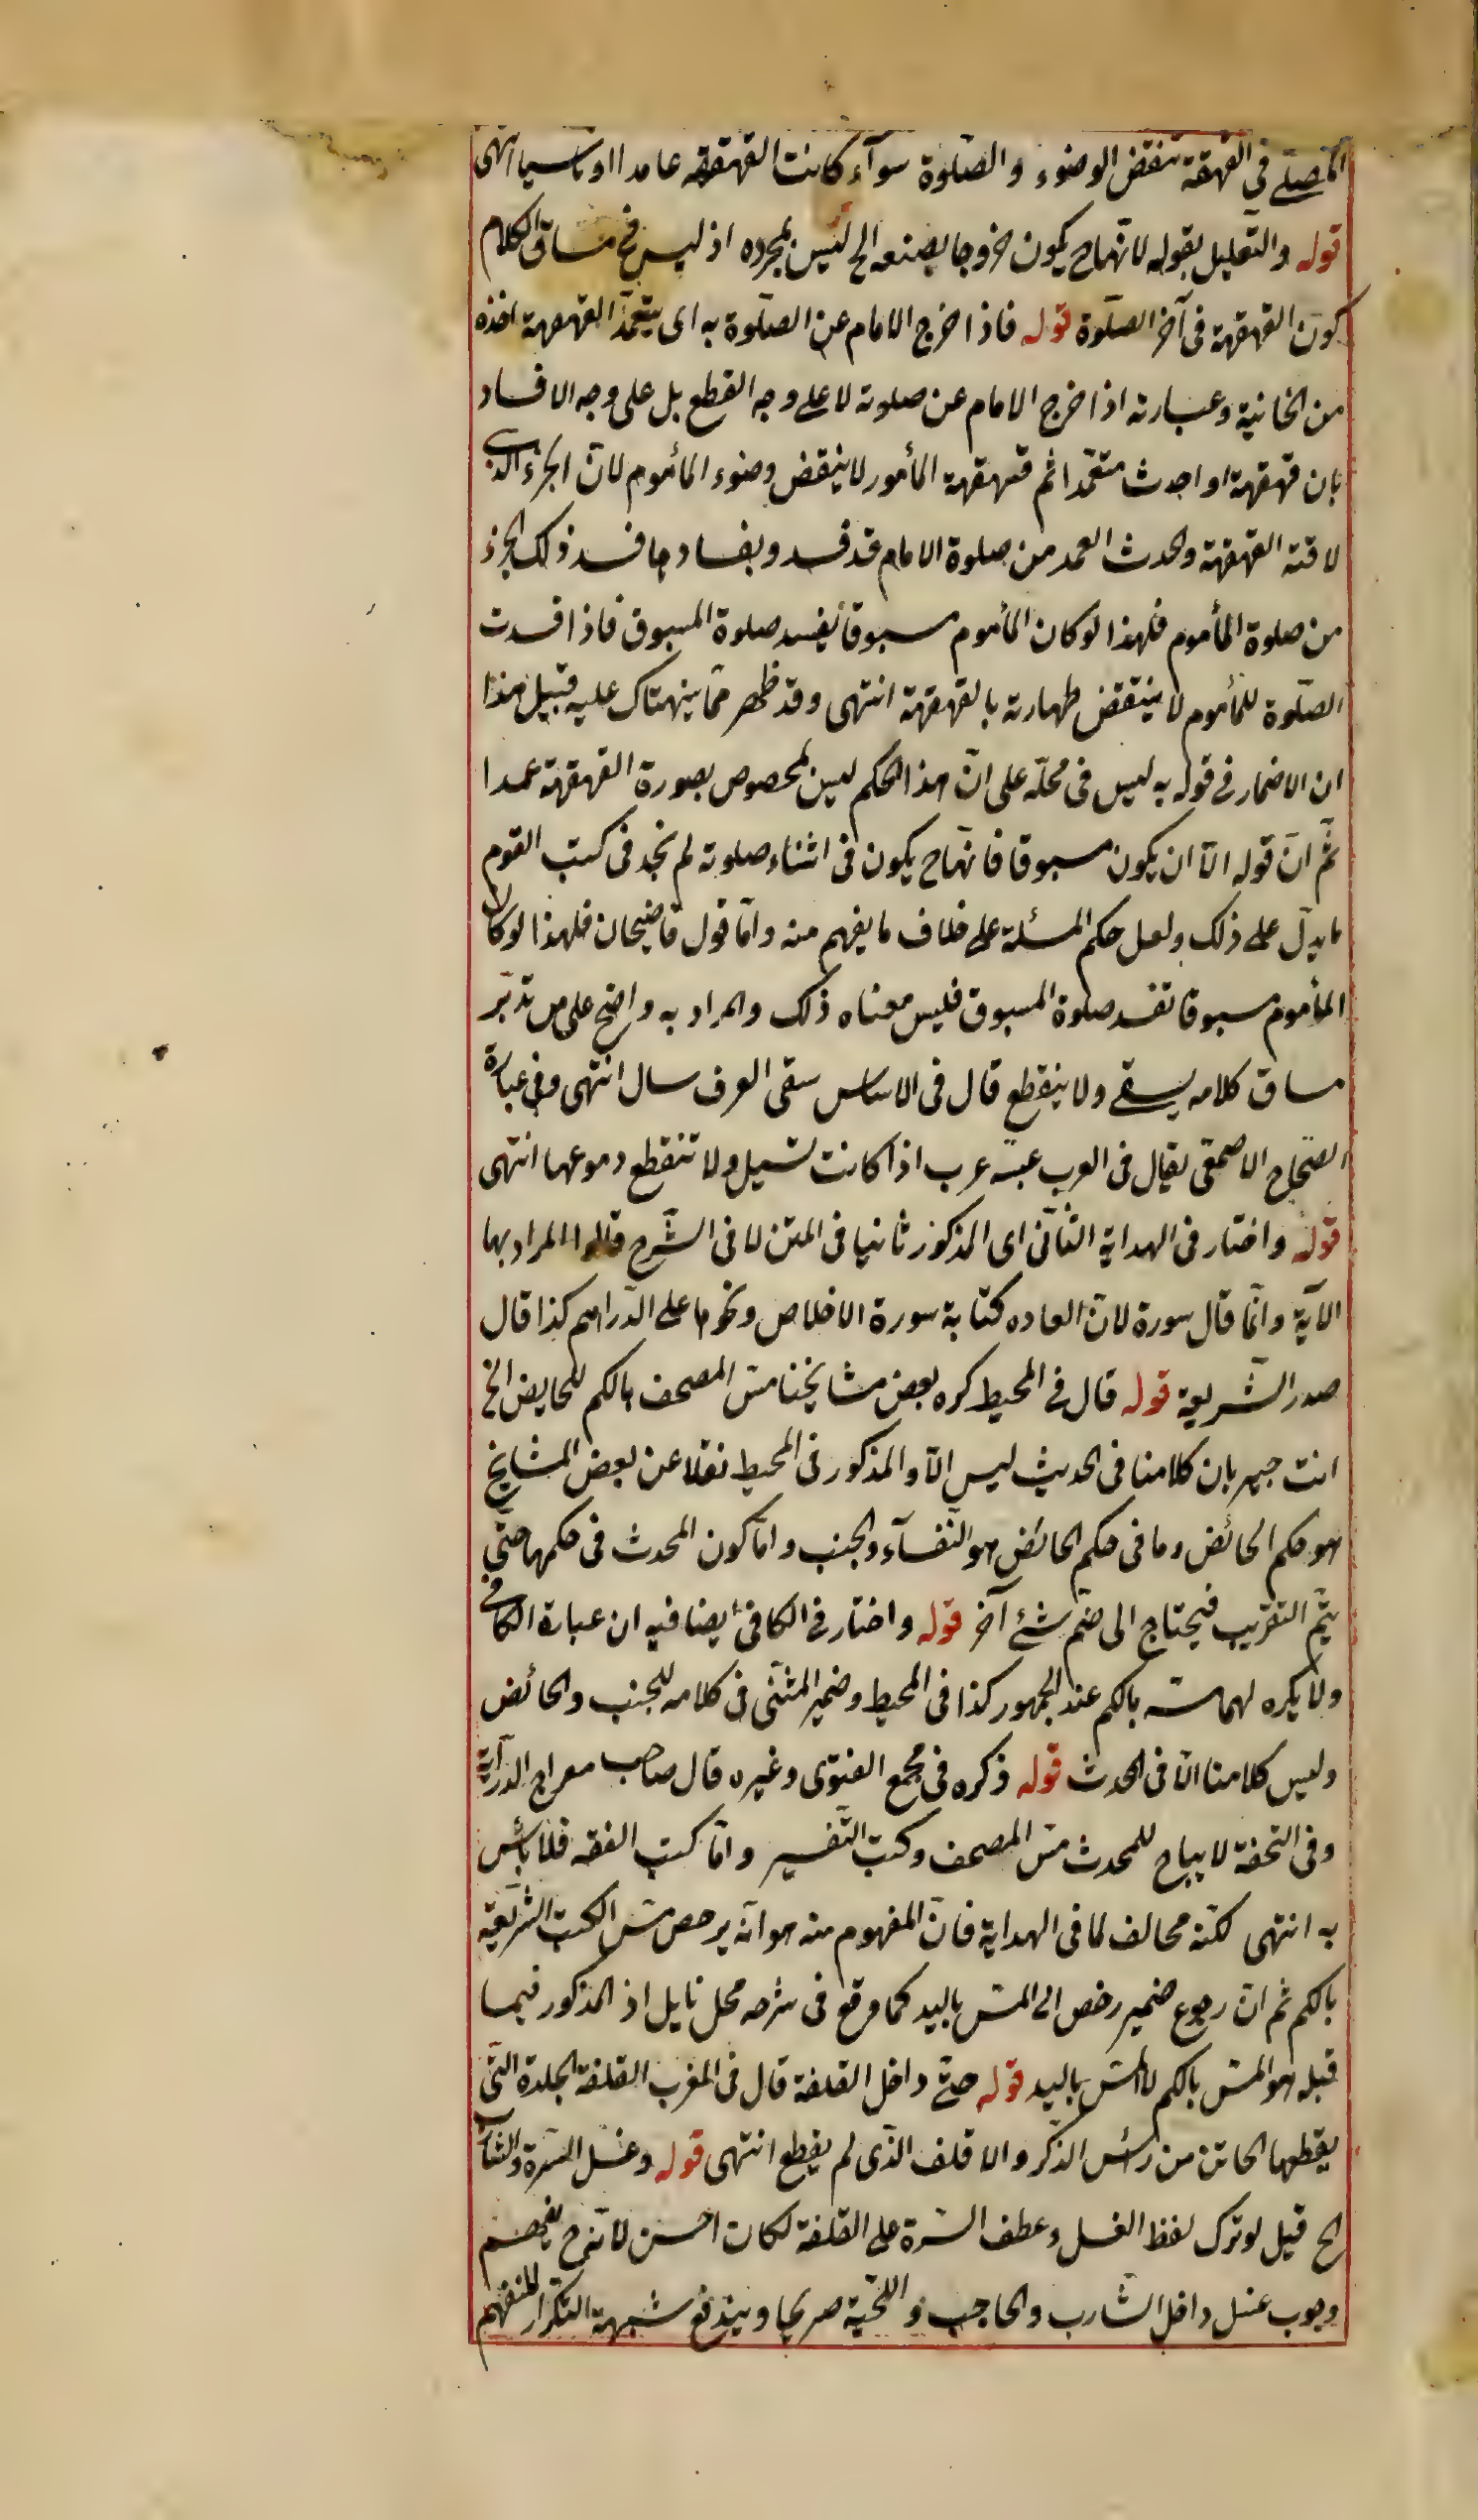 المصلى في القهقهة تنقض الوضوء والصلوة سوآء كانت القهقهة عامدا او ناسيا انتهى
قوله والتعليل بقوله لانها ح يكون خروجا بصنعه الخ ليس بمجرده اذ ليس في مساق الكلام
كون القهقهة فى آخر الصلوة قوله فاذا خرج الامام عن الصلوة به اى بتعمد القهقهة اخذه
من الخانية وعبارته اذا خرج الامام عن صلوته لا على وجه القطع بل على وجه الافساد
بان قهقهة او احدث متعمدا ثم قهقهة المأمور لا ينقض وضوء المأموم لان الجزء الذى
لاقته القهقهة والحدث العمد من صلوة الامام قد فسد وبفسادها فسد ذلك الجزء
من صلوة المأموم فلهذا لو كان المأموم مسبوقا يفسد صلوة المسبوق فاذا فسدت
الصلوة للمأموم لا ينتقض طهارته بالقهقهة انتهى وقد ظهر مما ينهتاك عليه قبيل هذا
ان الاضمار فى قوله به ليس فى محله على ان هذا الحكم ليس لمخصوص بصورة القهقهة عمدا
ثم ان قوله الا ان يكون مسبوقا فانها ح يكون فى اثناء صلوته لم نجد فى كتب القوم
ما يدل على ذلك ولعل حكم المسئلة على خلاف ما يفهم منه واما قول قاضيخان فلهذا لو كان
المأموم مسبوقا تفسد صلوة المسبوق فليس معناه ذلك والمراد به واضح على من تدبر
مساق كلامه يسقى ولا ينقطع قال فى الاساس سقى العرف سال انتهى وفى عبارة
الصحاح الاصمعى يقال فى العرب عينه عرب اذا كانت تسيل ولا تنقطع دموعها انتهى
قوله واختار فى الهداية الثانى اى المذكور ثانيا فى المتن لا فى الشرح قالوا المراد بها
الآية وانما قال سورة لان العاده كتابة سورة الاخلاص ونحوها على الدراهم كذا قال
صدر الشريعة قوله قال فى المحيط كره بعض مشايخنا مس المصحف بالكم للحايض الخ
انت جبير بان كلامنا فى الحديث ليس الا والمذكور فى المحيط نقلا عن بعض المشايخ
هو حكم الحائض وما فى حكم الحائض هو النفسآء والجنب واما كون المحدث فى حكمها حتى
يتم التقريب فيحتاج الى ضم شئ آخر قوله واختار فى الكافى ايضا فيه ان عبارة الكافى
ولا يكره لهما مسه بالكم عند الجمهور كذا فى المحيط وضمير المثنى فى كلامه للجنب والحائض
وليس كلامنا الا فى الحدث قوله ذكره فى مجمع الفتوى وغيره قال صاحب معراج الدراية
وفى التحفة لا يباح للمحدث مس المصحف وكتب التفسير واما كتب الفقه فلا بأس
به انتهى لكنه مخالف لما فى الهداية فان المفهوم منه هو انه يرخص مس الكتب الشريعة
بالكم ثم ان رجوع ضمير رخص الى المس باليد كما وقع فى شرحه محل تايل اذ المذكور فيما
قبله هو المس بالكم لا المس باليد قوله حتى داخل القلفة قال فى المغرب القلفة الجلدة التى
يقطعها الخاتن من رأس الذكر والاقلف الذى لم يقطع انتهى قوله وغسل السرة والشارب
الخ قيل لو ترك لفظ الغسل وعطف السرة على القلفة لكان احسن لانه ح يفهم
وجوب غسل داخل الشارب والحاجب واللحية صريحا ويندفع شبهة التكرار المنفهم